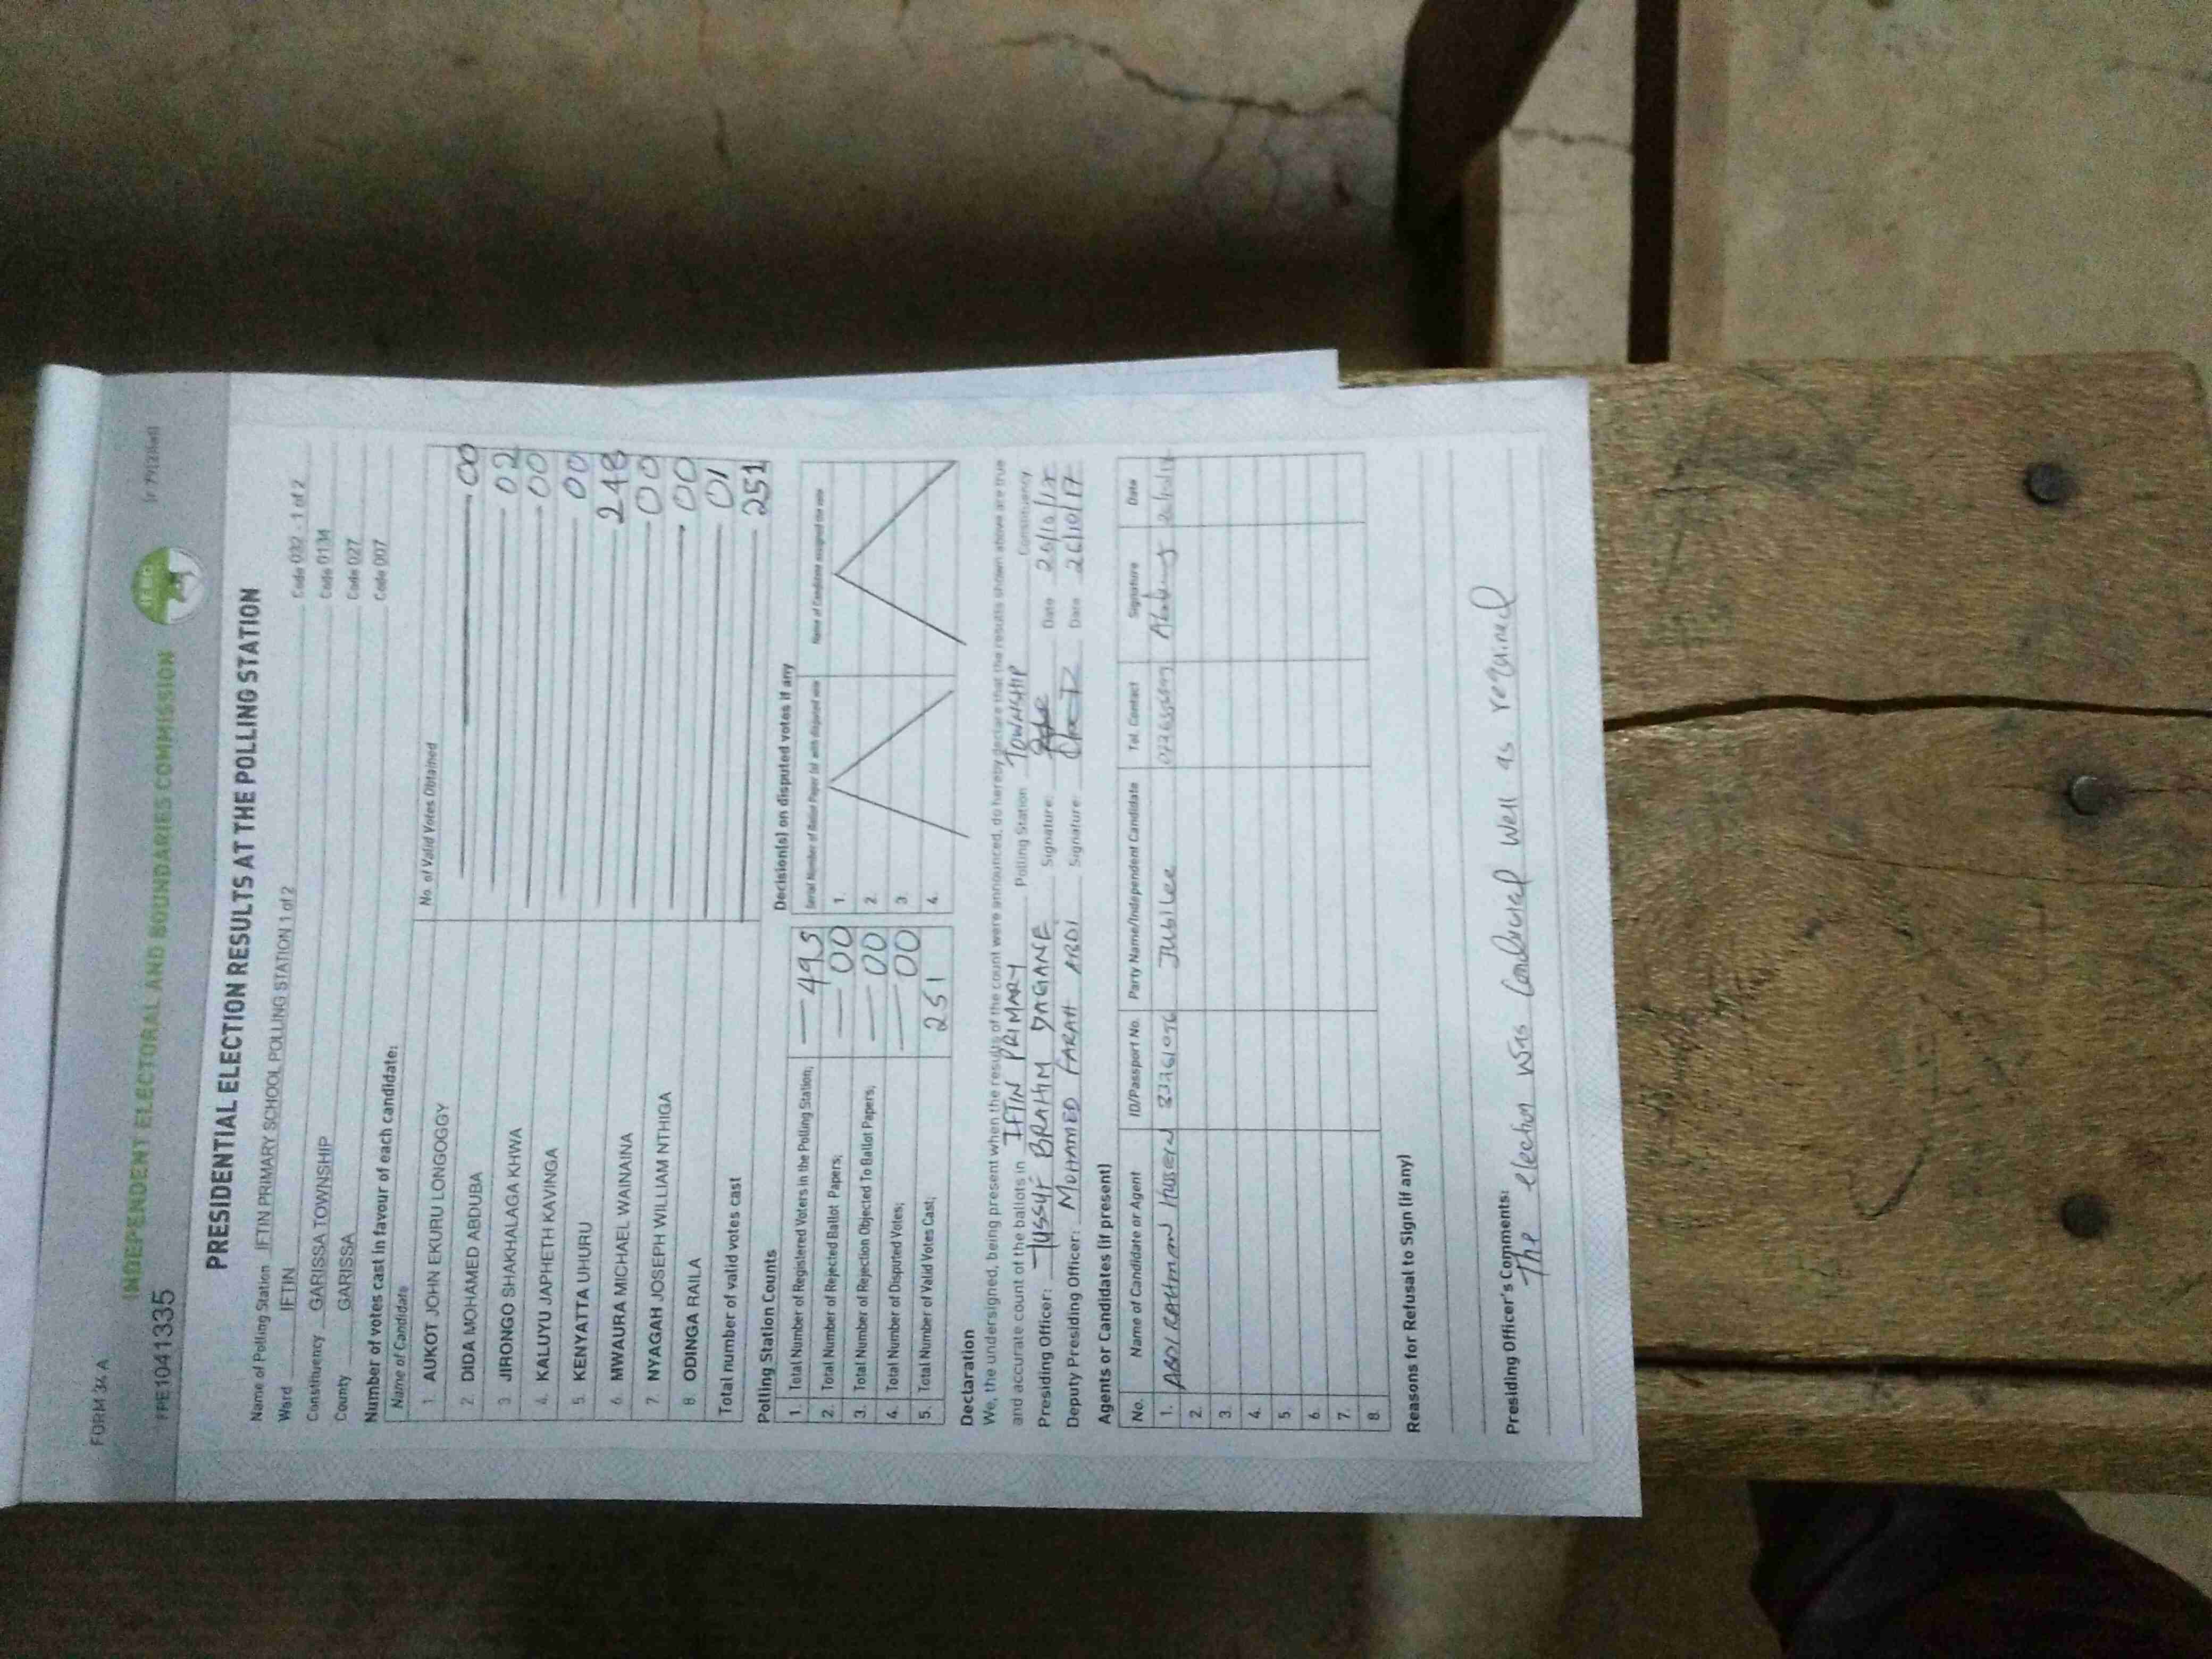 FORM 34 A
INDEPENDENT ELECTORAL AND BOUNDARIES COMMISSION
IEBC
PRE1041335
PRESIDENTIAL ELECTION RESULTS AT THE POLLING STATION
Name of Polling Station IFTIN PRIMARY SCHOOL POLLING STATION 1 of 2 Code 032 - 1 of 2
Ward IFTIN Code 0134
Constituency GARISSA TOWNSHIP Code 027
County GARISSA Code 007
Number of votes cast in favour of each candidate:
Name of Candidate No. of Valid Votes Obtained
1. AUKOT JOHN EKURU LONGOGGY 00
2. DIDA MOHAMED ABDUBA 02
3. JIRONGO SHAKHALAGA KHWA 00
4. KALUYU JAPHETH KAVINGA 00
5. KENYATTA UHURU 248
6. MWAURA MICHAEL WAINAINA 00
7. NYAGAH JOSEPH WILLIAM NTHIGA 00
8. ODINGA RAILA 01
Total number of valid votes cast 251
Polling Station Counts
1. Total Number of Registered Voters in the Polling Station; 495
2. Total Number of Rejected Ballot Papers; 00
3. Total Number of Rejection Objected To Ballot Papers; 00
4. Total Number of Disputed Votes; 00
5. Total Number of Valid Votes Cast; 251
Decision(s) on disputed votes if any
Serial Number of Ballot Paper (s) with disputed vote Name of Candidate assigned the vote
1.
2.
3.
4.
Declaration
We, the undersigned, being present when the results of the count were announced, do hereby declare that the results shown above are true
and accurate count of the ballots in IFTIN PRIMARY Polling Station TOWNSHIP Constituency
Presiding Officer: YUSSUF BRAHIM DAGANE Signature: Date 26/10/17
Deputy Presiding Officer: MOHAMED FARAH ABDI Signature: Date 26/10/17
Agents or Candidates (if present)
No. Name of Candidate or Agent ID/Passport No. Party Name/Independent Candidate Tel. Contact Signature Date
1. ABDIRAHMAN Hussein Jubilee
2.
3.
4.
5.
6.
7.
8.
Reasons for Refusal to Sign (if any)
Presiding Officer's Comments:
The election was conducted well as required